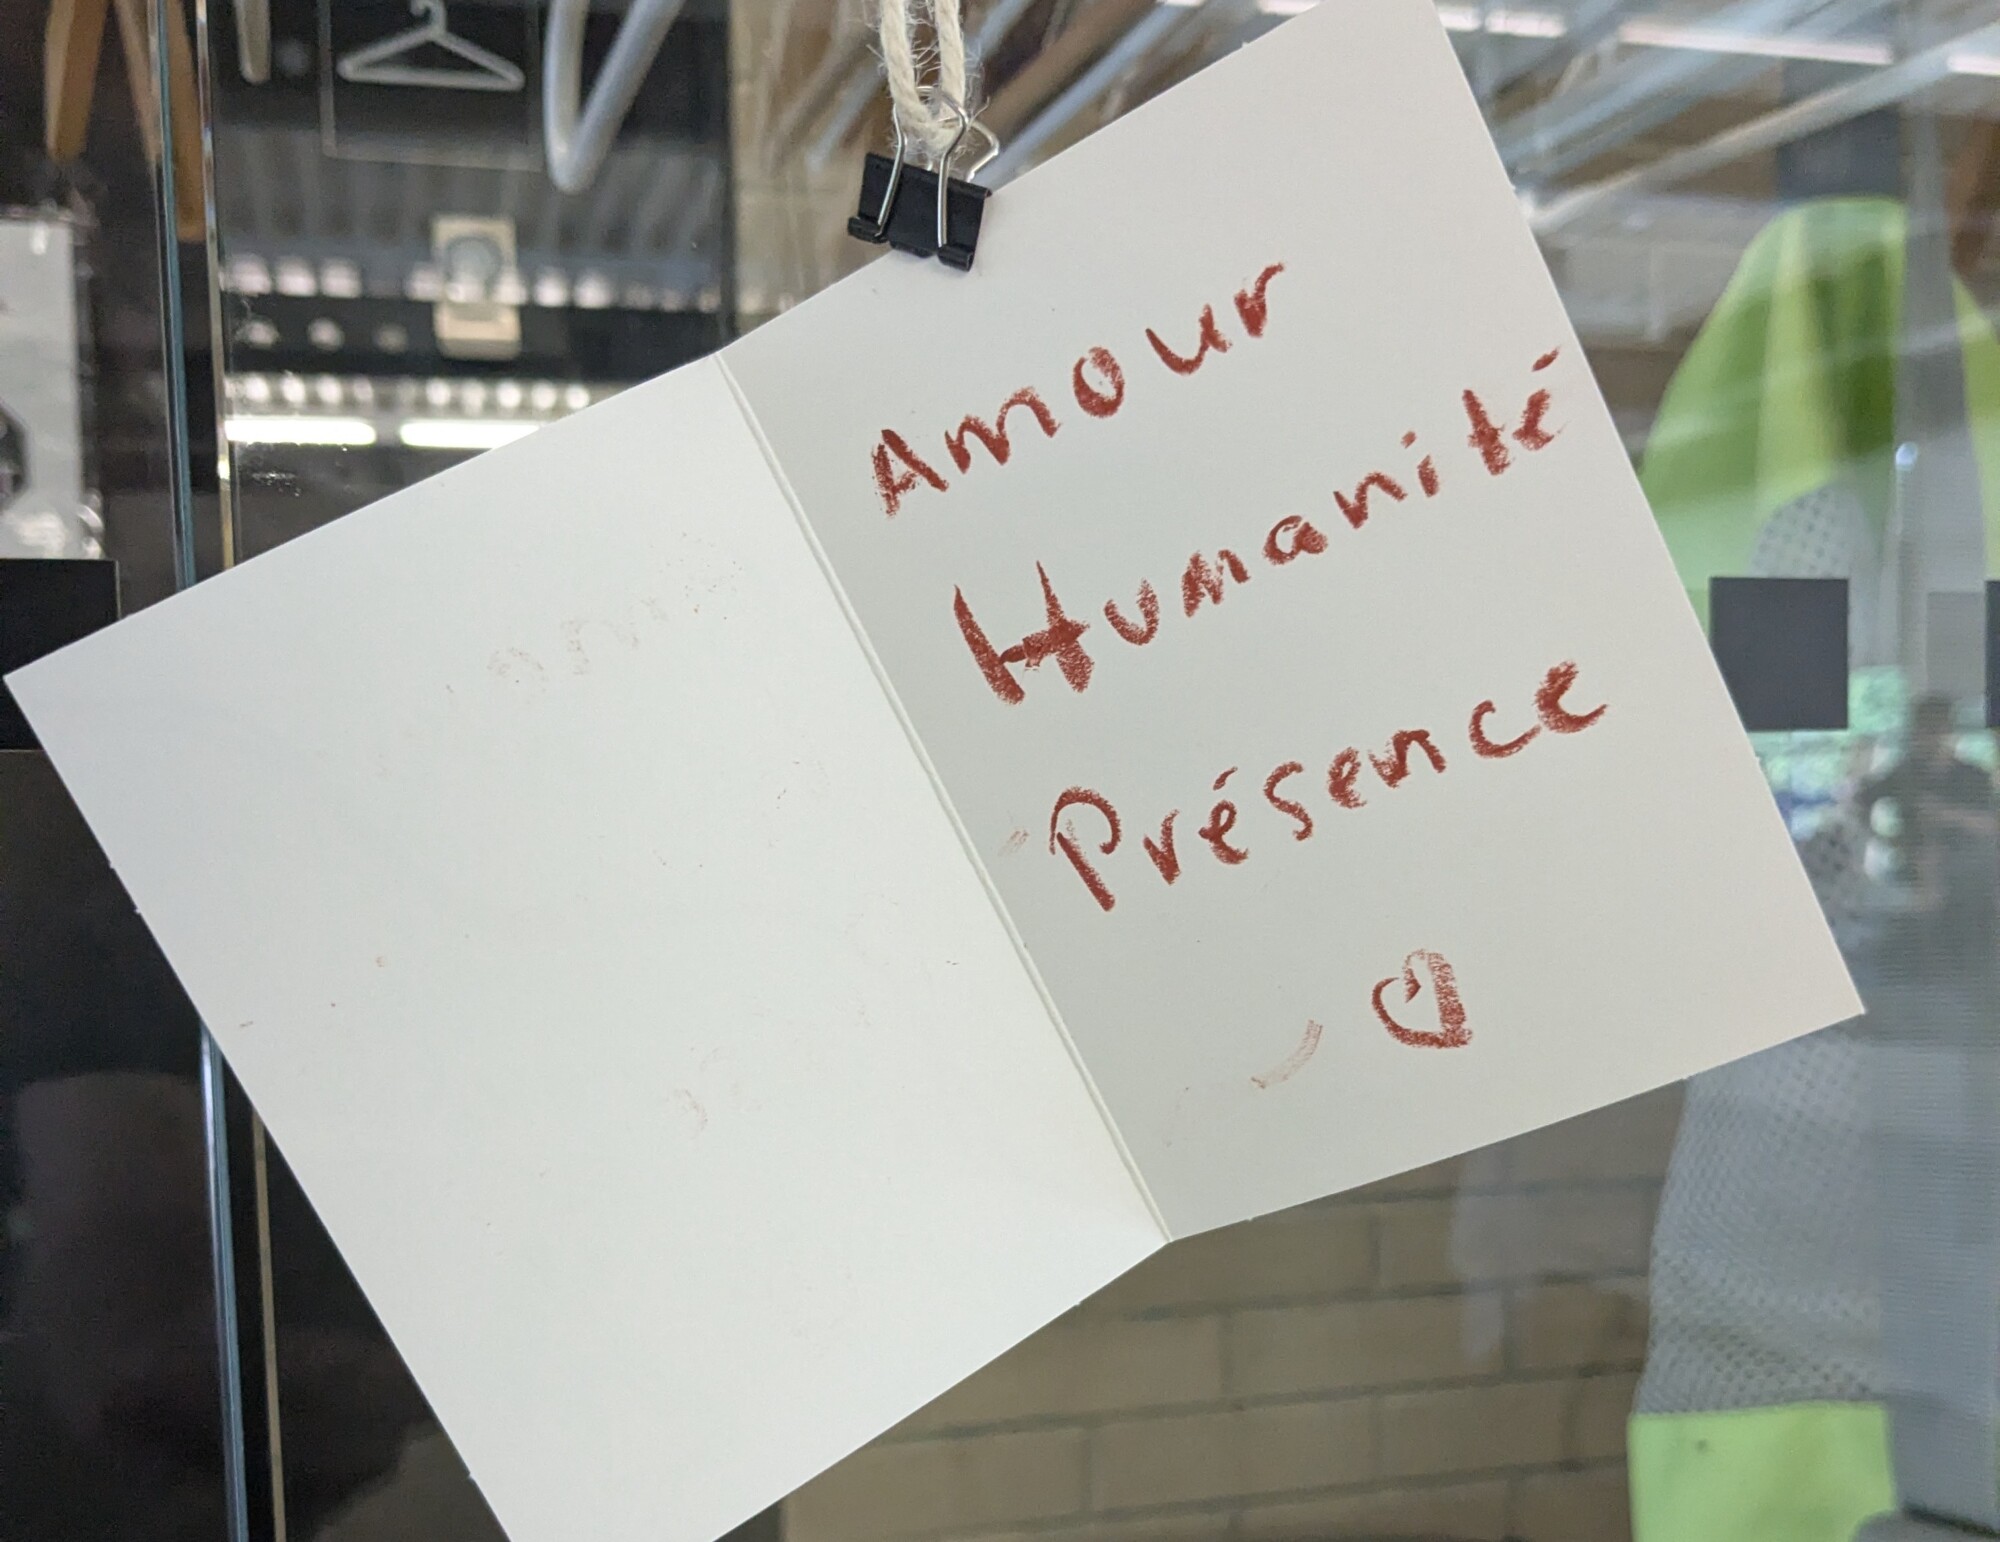 Amour
Humanité
Présence